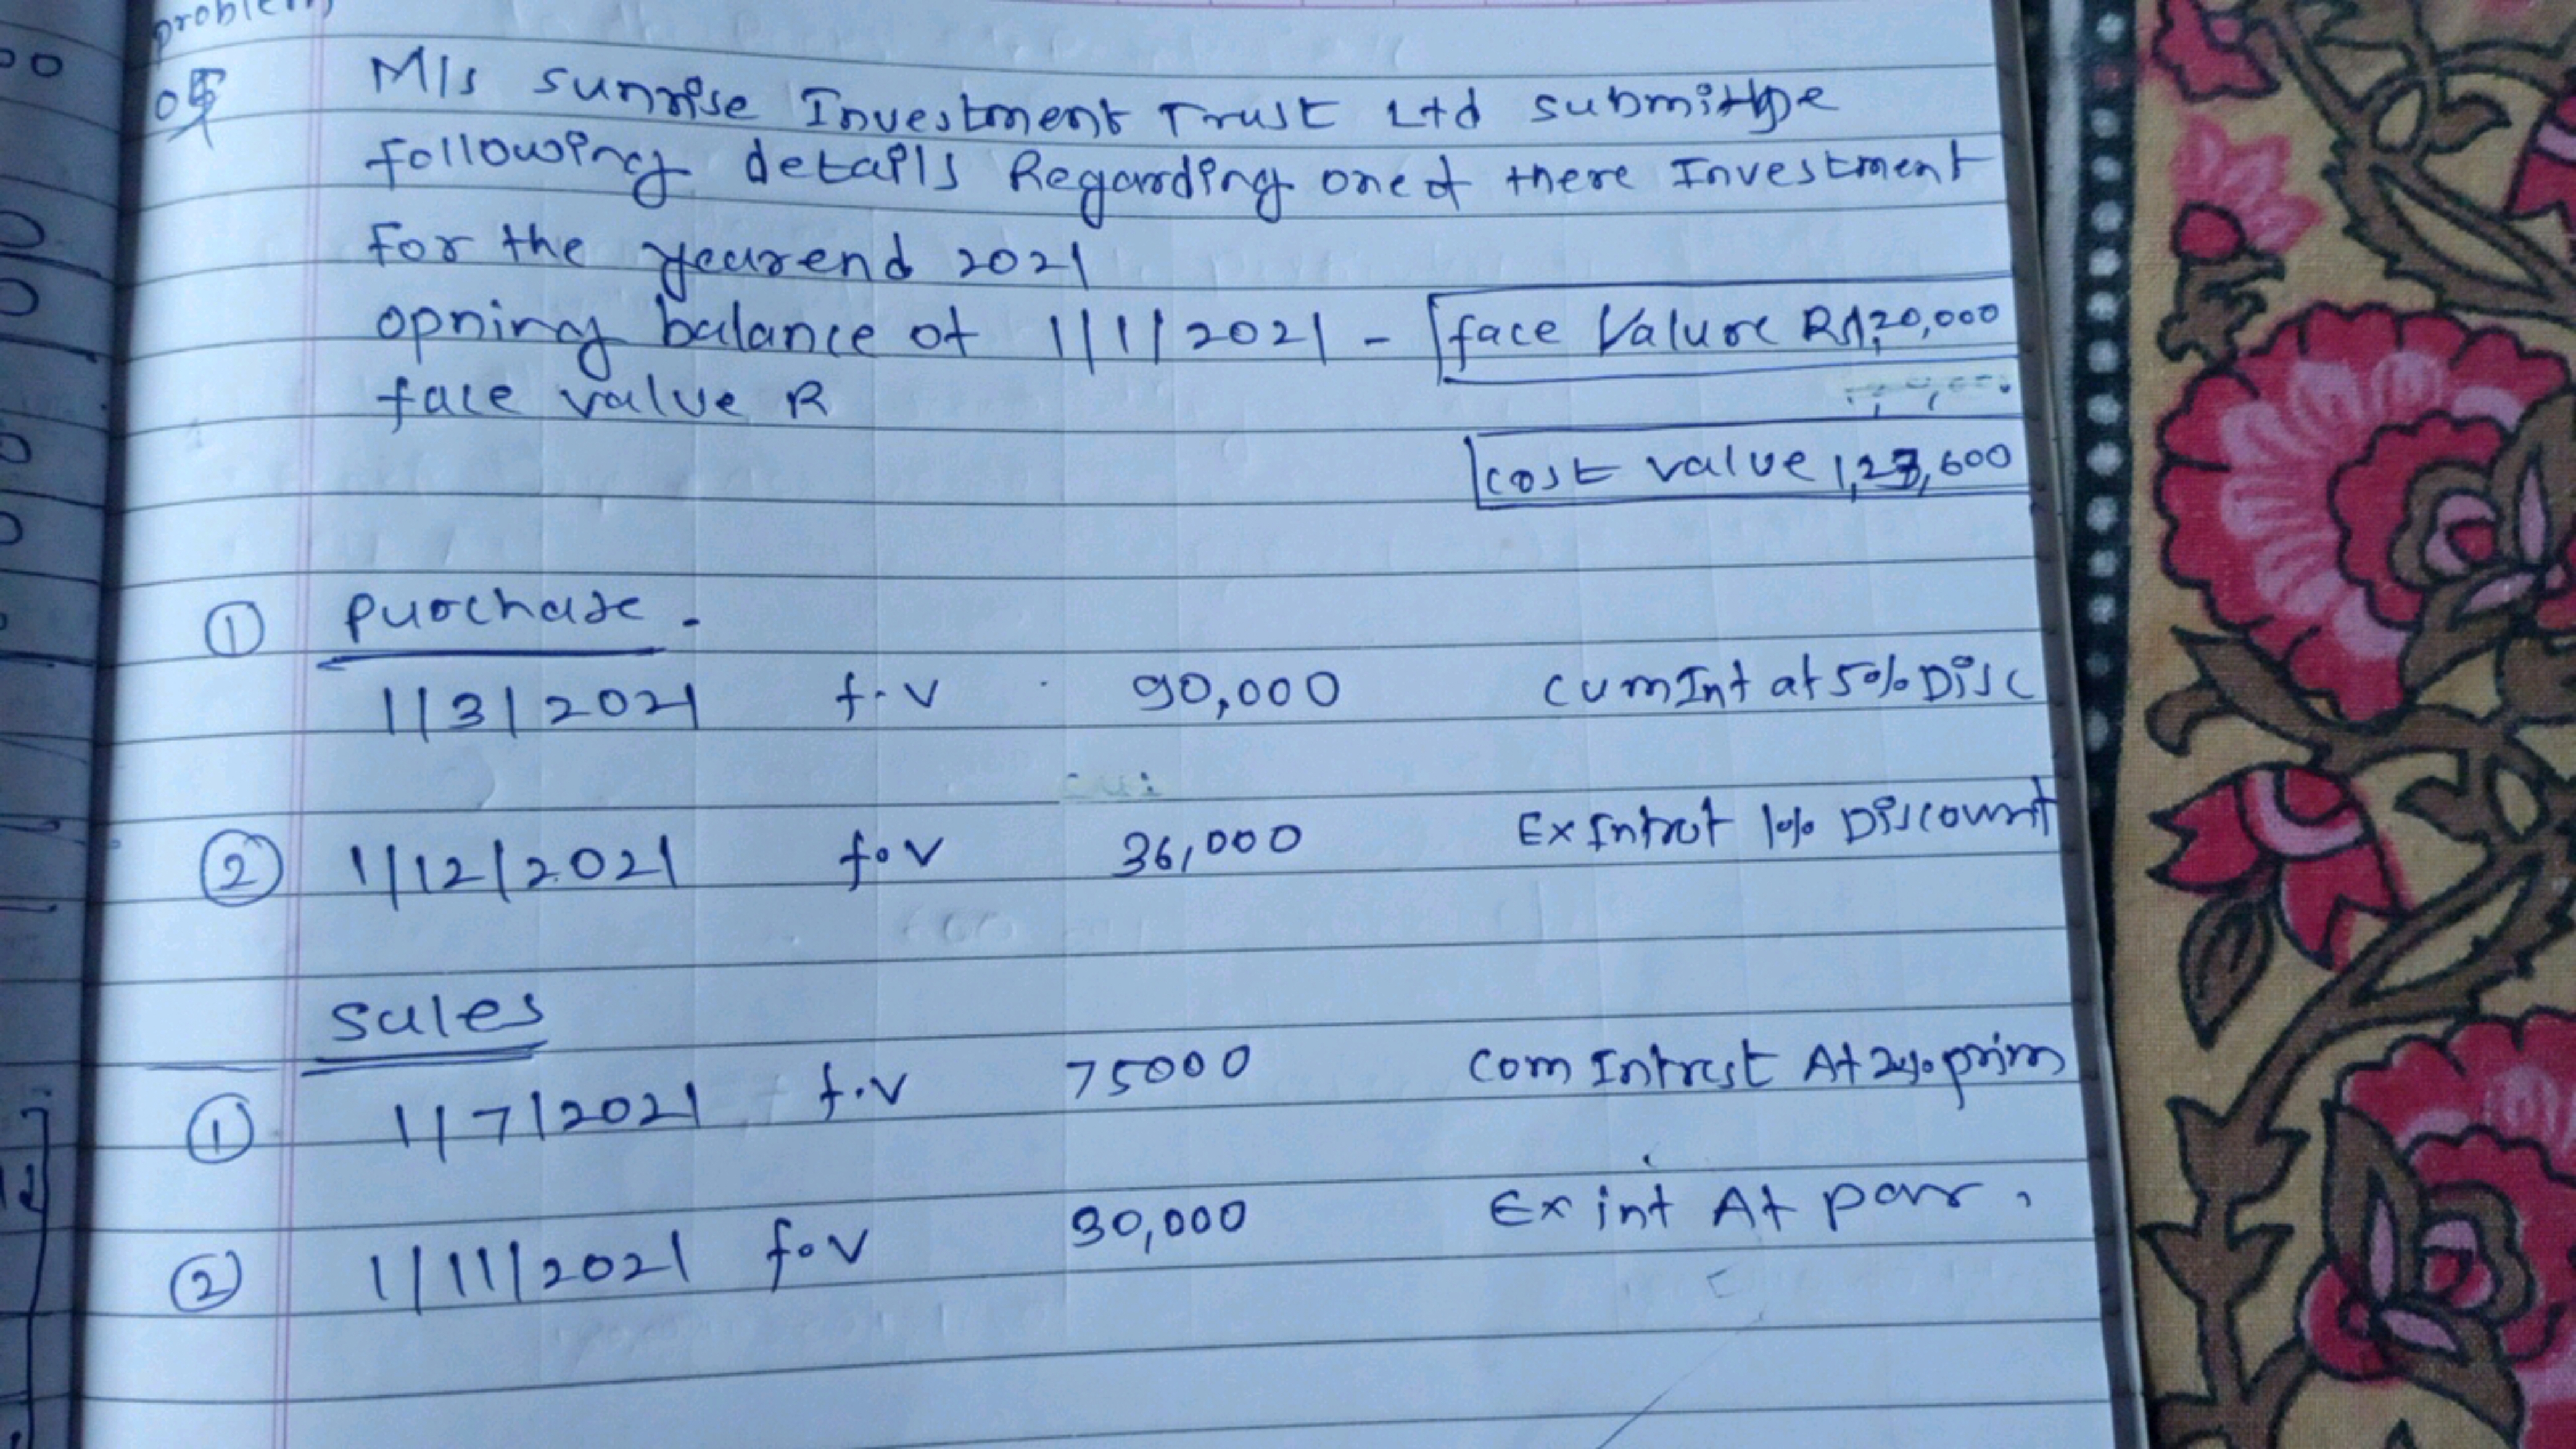 problem
05 M/s sunrise Investment Trust Ltd submitthe
following details Regarding one of there Investment
for the yearend 2021
opning balance of 1/1/2021 - face Value Rs1,20,000
face value R
cost value 1,23,600
① purchase.
1/3/2021 f.v 90,000 cum Int at 5% Disc
② 1/12/2021 f.v 36,000 Ex Intrst 1% Discount
sales
① 1/7/2021 f.v 75000 com Intrest At 2% prim
② 1/11/2021 f.v 30,000 Ex int At par.